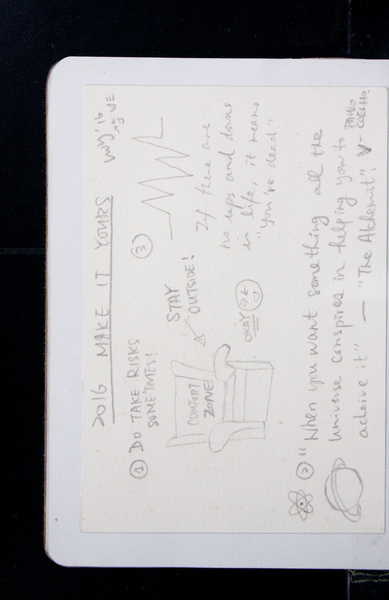 2016 MAKE IT YOURS
① DO TAKE RISKS
SOMETIMES!
COMFORT
ZONE
STAY
OUTSIDE!
OKAY?
③
If there are
no ups and downs
in life, it means
"you're dead"
② "When you want something all the
Universe conspires in helping you to
acheive it" — "The Alchemist".
PAULO
COELHO.